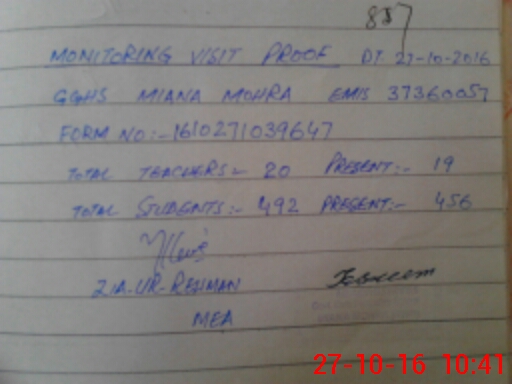 887
MONITORING VISIT PROOF DT. 27-10-2016
GGHS MIANA MOHRA EMIS 37360057
FORM NO:-1610271039647
TOTAL TEACHERS:- 20 PRESENT:- 19
TOTAL STUDENTS:- 492 PRESENT:- 456
ZIA-UR-REHMAN
MEA
27-10-16 10:41